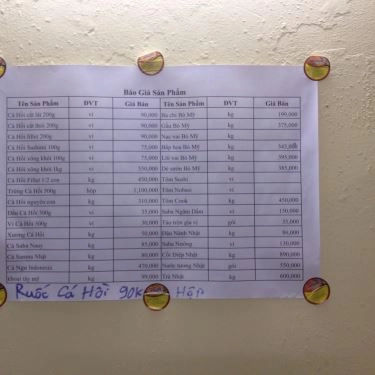 Báo Giá Sản Phẩm
Tên Sản Phẩm ĐVT Giá Bán Tên Sản Phẩm ĐVT Giá Bán
Cá Hồi cắt lát 200g vỉ 90,000 Ba chỉ Bò Mỹ kg 199,000
Cá Hồi cắt thỏi 200g vỉ 90,000 Gầu Bò Mỹ kg 375,000
Cá Hồi fillet 200g vỉ 90,000 Nạc vai Bò Mỹ kg
Cá Hồi Sashimi 100g vỉ 75,000 Bắp hoa Bò Mỹ kg
Cá Hồi xông khói 100g vỉ 75,000 Lõi vai Bò Mỹ kg 395,000
Cá Hồi xông khói 1kg vỉ 550,000 Dẻ sườn Bò Mỹ kg 385,000
Cá Hồi Fillet 1/2 con kg 450,000 Tôm Sushi vỉ
Trứng Cá Hồi 500g hộp 1,100,000 Tôm Nobasi vỉ
Cá Hồi nguyên con kg 310,000 Tôm Cook kg 450,000
Đầu Cá Hồi 500g vỉ 35,000 Saba Ngâm Dấm vỉ 150,000
Vỉ Cá Hồi 500g vỉ 30,000 gói 35,000
Xương Cá Hồi kg 50,000 Đậu Nành Nhật kg 80,000
Cá Saba Nauy kg 85,000 Saba Nướng vỉ 130,000
Cá Saroma Nhật kg 80,000 Cồi Điệp Nhật kg 890,000
Cá Ngừ Indonesia kg 470,000 gói 550,000
Khoai tây mỹ kg 99,000 Trà Nhật kg 600,000
Ruốc Cá Hồi 90K Hộp